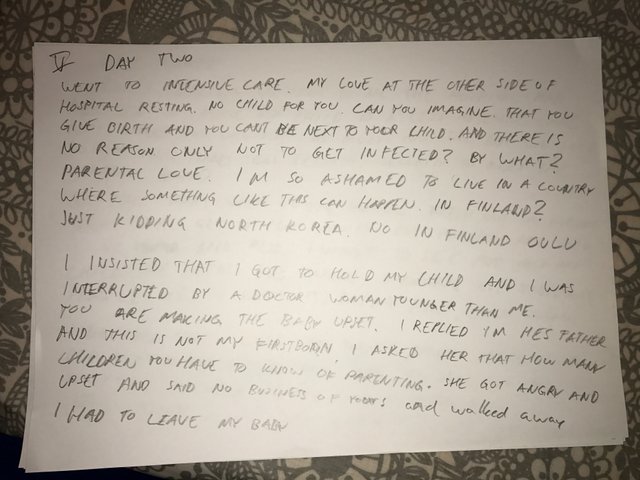 V DAY TWO
WENT TO INTENSIVE CARE. MY LOVE AT THE OTHER SIDE OF
HOSPITAL RESTING. NO CHILD FOR YOU. CAN YOU IMAGINE. THAT YOU
GIVE BIRTH AND YOU CANT BE NEXT TO YOUR CHILD. AND THERE IS
NO REASON ONLY NOT TO GET INFECTED? BY WHAT?
PARENTAL LOVE. I'M SO ASHAMED TO LIVE IN A COUNTRY
WHERE SOMETHING LIKE THIS CAN HAPPEN. IN FINLAND?
JUST KIDDING NORTH KOREA. NO IN FINLAND OULU
I INSISTED THAT I GOT TO HOLD MY CHILD AND I WAS
INTERRUPTED BY A DOCTOR WOMAN YOUNGER THAN ME.
YOU ARE MAKING THE BABY UPSET. I REPLIED I'M HES FATHER
AND THIS IS NOT MY FIRSTBORN. I ASKED HER THAT HOW MANY
CHILDREN YOU HAVE TO KNOW OF PARENTING. SHE GOT ANGRY AND
UPSET AND SAID NO BUZINESS OF YOURS and walked away
I HAD TO LEAVE MY BABY